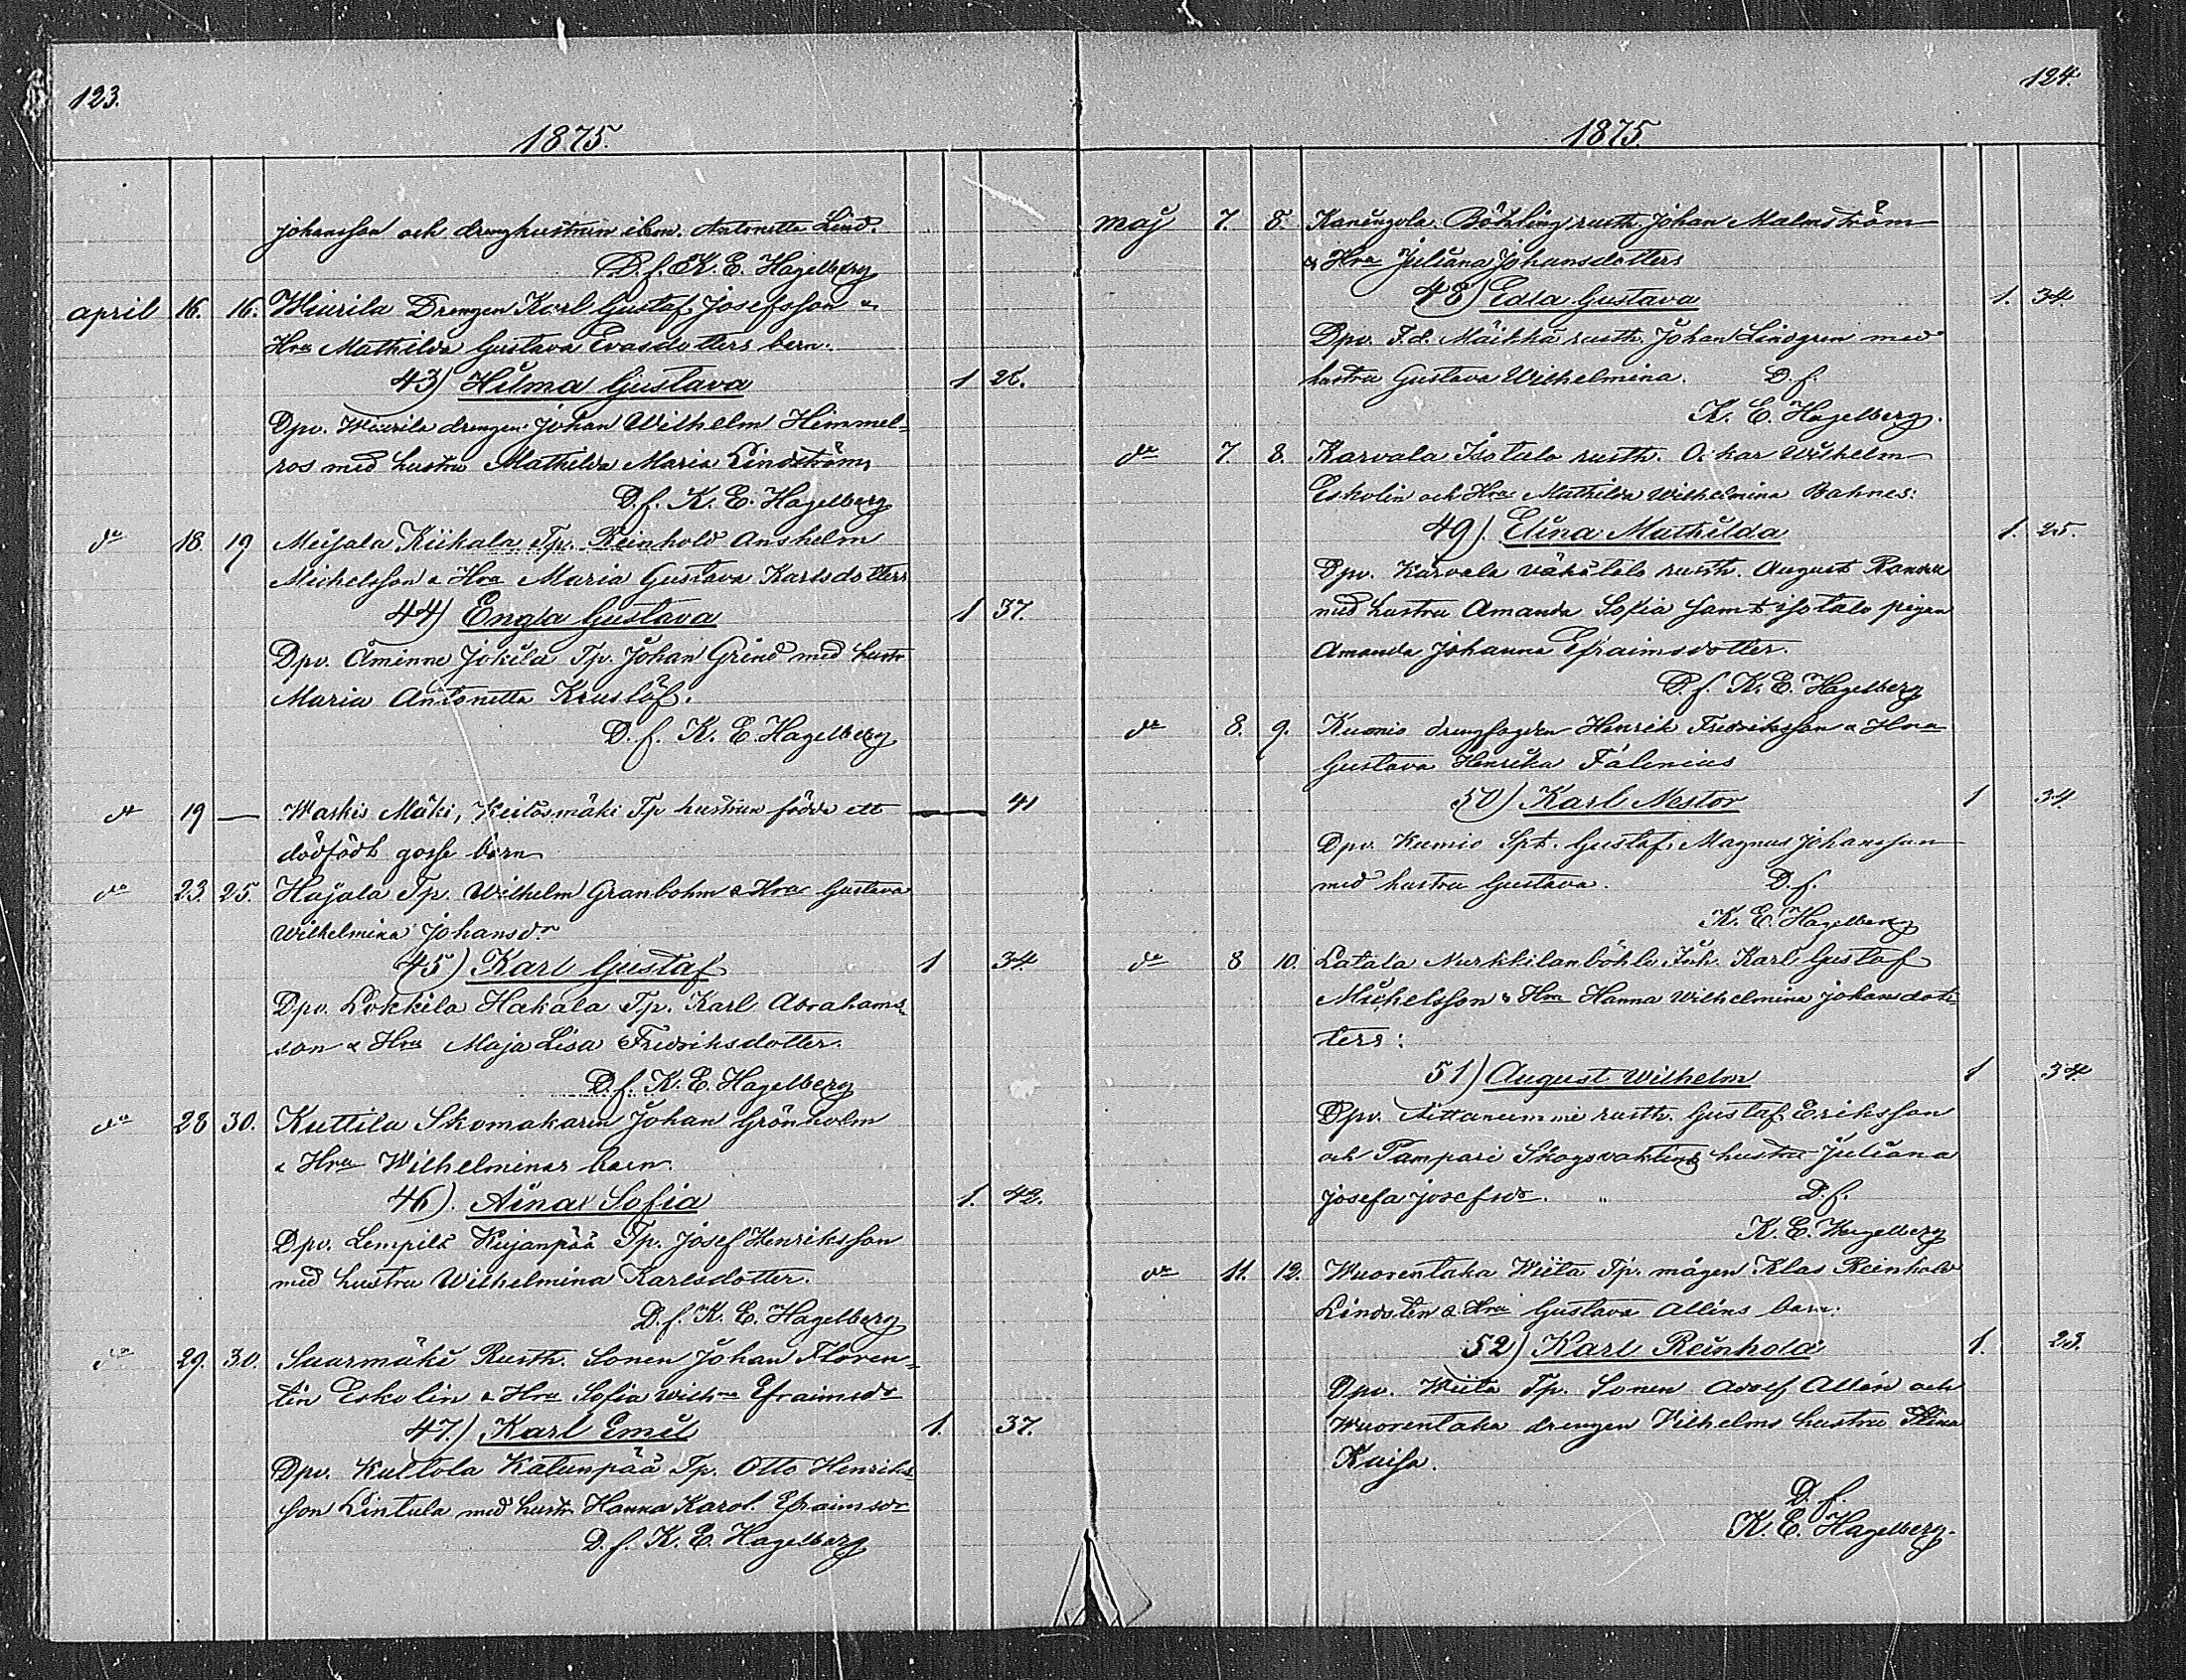 123.
1875.
Johansson och drenghustrun ibm. Antonetta Lind.
D.f. K. E. Hagelberg
april 16. 16. Wiurila Drengen Karl Gustaf Josefsson &
Hru Mathilda Gustava Evasdotters barn.
43) Hilma Gustava 1 26.
Dpv. Wiurila drengen Johan Wilhelm Himmel=
ros med hustru Mathilda Maria Lindström,
D.f. K. E. Hagelberg
do 18. 19 Meijala Kiikala Tp. Reinhold Anshelm
Michelsson & Hru Maria Gustava Karlsdotters
44) Engla Gustava 1 37.
Dpv. Åminne Jokila Tp. Johan Grind med hustr
Maria Antonetta Kruslöf.
D.f. K. E. Hagelberg
19 — Waskis Mäki, Tp hustrun födde ett — 41
dödfödt gosse barn
do 23. 25. Hajala Tp. Wilhelm Granbohm & Hru Gustava
Wilhelmina Johansdr
45) Karl Gustaf 1 34.
Dpv. Lokkila Hakala Tp. Karl Abrahams=
son & Hru Maja Lisa Fredriksdotter.
D.f. K. E. Hagelberg
do 28 30. Kuttila Skomakaren Johan Grönholm
& Hru Wilhelminas barn.
46). Aina Sofia 1. 42.
Dpv. Lempilä Kujanpää Tp. Josef Henriksson
med hustru Wilhelmina Karlsdotter.
D.f. K. E. Hagelberg
do 29. 30. Suarmäki Rusth. Sonen Johan Floren=
tin Eskolin & Hru Sofia Wilh=na Efraimsdr
47.) Karl Emil 1. 37.
Dpv. Kultola Katunpää Tp. Otto Henriks=
son Lintula med hustr Hanna Karol. Efraimsdr
D.f. K. E. Hagelberg
124.
1875.
Maj 7. 8. Böhling rusth. Johan Malmström
& Hru Juliana Johansdotters
48) Edla Gustava 1. 34.
Dpv. F.d. rusth. Johan Lindgren med
hustru Gustava Wilhelmina. D.f.
K. E. Hagelberg.
do 7. 8. Karvala Isotalo rusth. Oskar Wilhelm
Eskolin och Hru Mathilda Wilhelmina Bahnes:
49). Elina Mathilda 1. 25.
Dpv. Karvala Vähätalo rusth. August
med hustru Amanda Sofia samt isotalo pigan
Amanda Johanna Efraimsdotter.
D.f. K. E. Hagelberg
do 8. 9. Kumio drengfogden Henrik Fredriksson & Hru
Gustava Henrika Falenius
50) Karl Nestor 1 34.
Dpv. Kumio Spt. Gustaf Magnus Johansson
med hustru Gustava. D.f.
K. E. Hagelberg
do 8 10. Latala Nurkkilanböhle Inh. Karl Gustaf
Michelsson & Hru Hanna Wilhelmina Johansdot=
ters:
51) August Wilhelm 1 34.
Dpv. rusth. Gustaf Eriksson
och Pampari Skogsvaktens hustru Juliana
Josefa Josefsdr. D.f.
K. E. Hagelberg
do 11. 12. Wuorentaka Wiita Tp. mågen Klas Reinhold
Lindsten & Hru Gustava Alléns barn:
52) Karl Reinhold 1. 23.
Dpv. Wiita Tp. Sonen Adolf Allén och
Wuorentaka drengen Vilhelms hustru
Kaisa.
D.f.
K. E. Hagelberg.